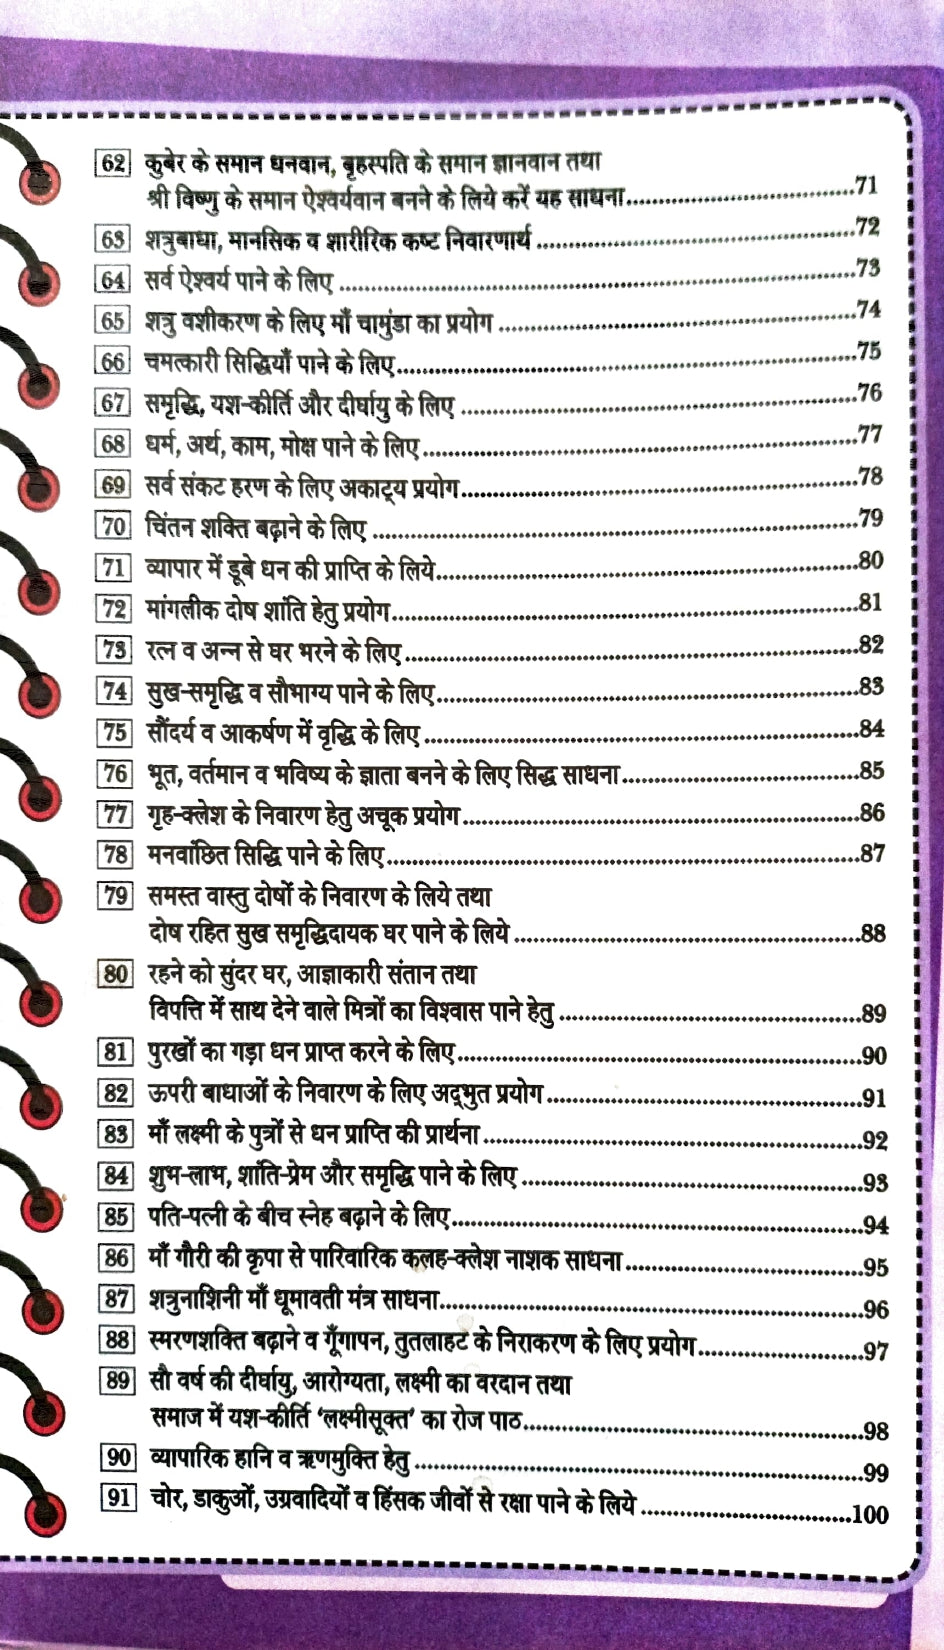 62 कुबेर के समान धनवान, बृहस्पति के समान ज्ञानवान तथा
श्री विष्णु के समान ऐश्वर्यवान बनने के लिये करें यह साधना....................................71
63 शत्रुबाधा, मानसिक व शारीरिक कष्ट निवारणार्थ....................................72
64 सर्व ऐश्वर्य पाने के लिए....................................73
65 शत्रु वशीकरण के लिए माँ चामुंडा का प्रयोग....................................74
66 चमत्कारी सिद्धियाँ पाने के लिए....................................75
67 समृद्धि, यश-कीर्ति और दीर्घायु के लिए....................................76
68 धर्म, अर्थ, काम, मोक्ष पाने के लिए....................................77
69 सर्व संकट हरण के लिए अकाट्य प्रयोग....................................78
70 चिंतन शक्ति बढ़ाने के लिए....................................79
71 व्यापार में डूबे धन की प्राप्ति के लिये....................................80
72 मांगलीक दोष शांति हेतु प्रयोग....................................81
73 रत्न व अन्न से घर भरने के लिए....................................82
74 सुख-समृद्धि व सौभाग्य पाने के लिए....................................83
75 सौंदर्य व आकर्षण में वृद्धि के लिए....................................84
76 भूत, वर्तमान व भविष्य के ज्ञाता बनने के लिए सिद्ध साधना....................................85
77 गृह-क्लेश के निवारण हेतु अचूक प्रयोग....................................86
78 मनवांछित सिद्धि पाने के लिए....................................87
79 समस्त वास्तु दोषों के निवारण के लिये तथा
दोष रहित सुख समृद्धिदायक घर पाने के लिये....................................88
80 रहने को सुंदर घर, आज्ञाकारी संतान तथा
विपत्ति में साथ देने वाले मित्रों का विश्वास पाने हेतु....................................89
81 पुरखों का गड़ा धन प्राप्त करने के लिए....................................90
82 ऊपरी बाधाओं के निवारण के लिए अद्‌भुत प्रयोग....................................91
83 माँ लक्ष्मी के पुत्रों से धन प्राप्ति की प्रार्थना....................................92
84 शुभ-लाभ, शांति-प्रेम और समृद्धि पाने के लिए....................................93
85 पति-पत्नी के बीच स्नेह बढ़ाने के लिए....................................94
86 माँ गौरी की कृपा से पारिवारिक कलह-क्लेश नाशक साधना....................................95
87 शत्रुनाशिनी माँ धूमावती मंत्र साधना....................................96
88 स्मरणशक्ति बढ़ाने व गूँगापन, तुतलाहट के निराकरण के लिए प्रयोग....................................97
89 सौ वर्ष की दीर्घायु, आरोग्यता, लक्ष्मी का वरदान तथा
समाज में यश-कीर्ति ‘लक्ष्मीसूक्त’ का रोज पाठ....................................98
90 व्यापारिक हानि व ऋणमुक्ति हेतु....................................99
91 चोर, डाकुओं, उग्रवादियों व हिंसक जीवों से रक्षा पाने के लिये....................................100